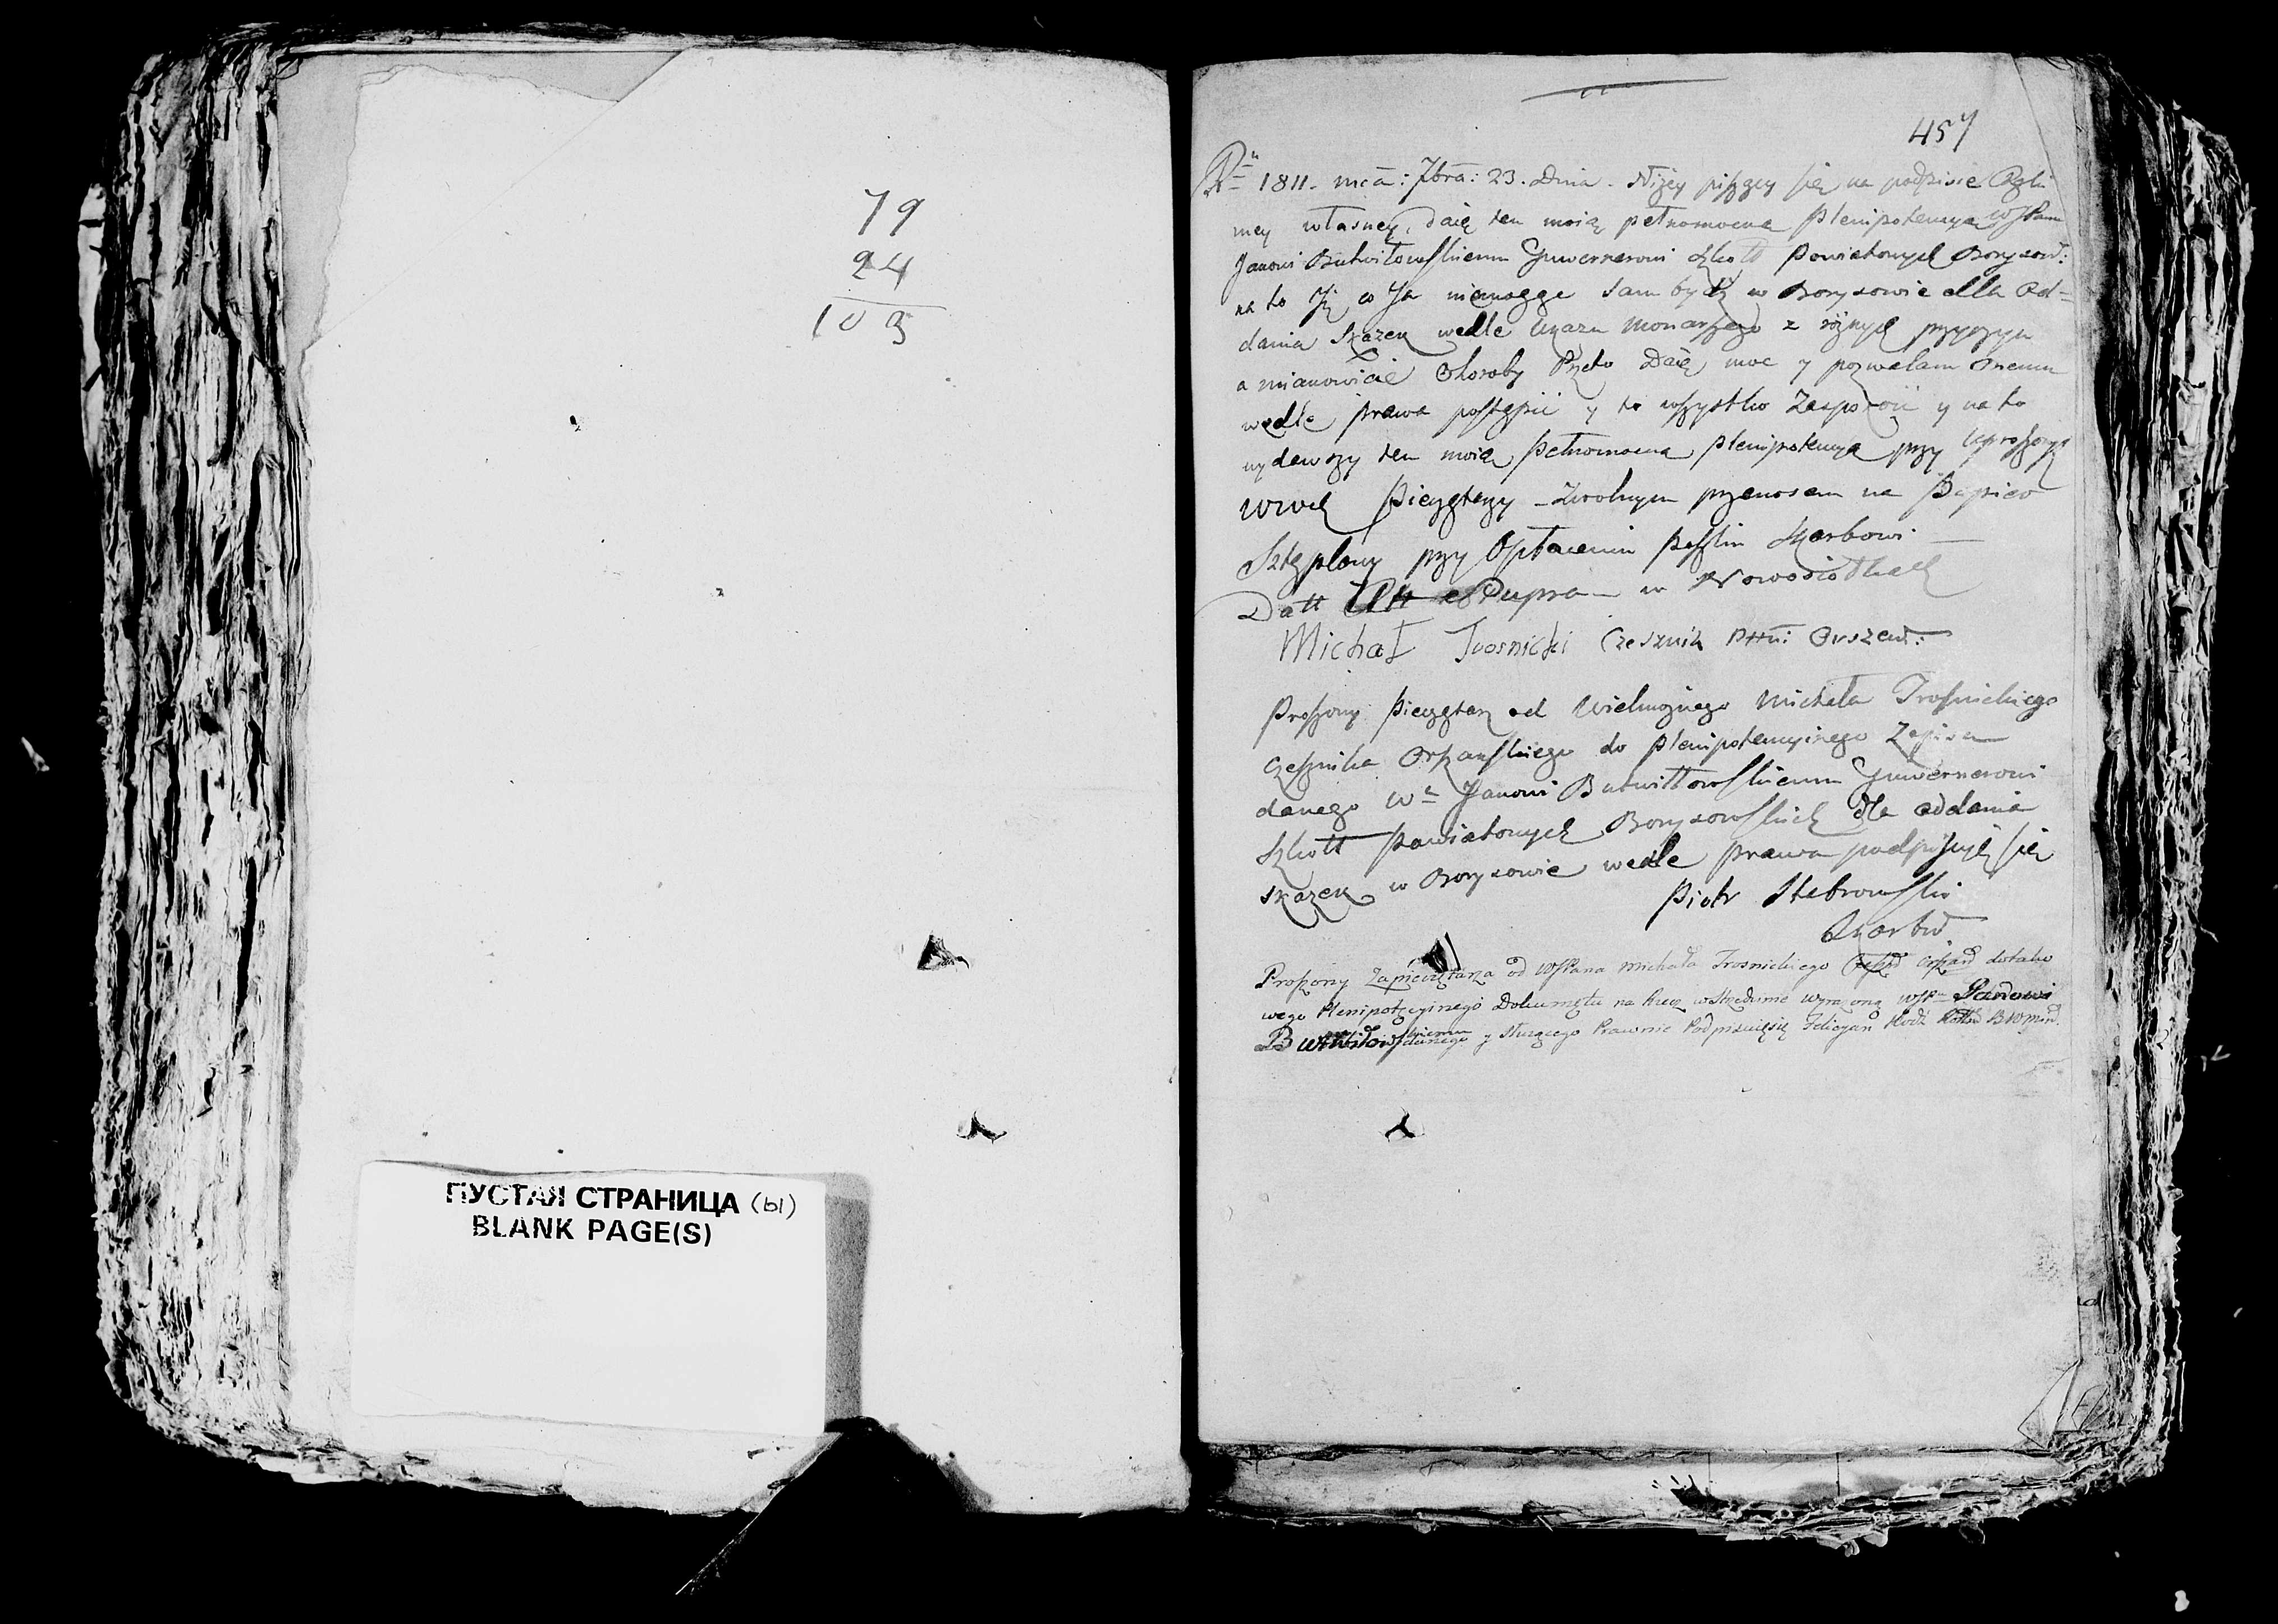 79
24
103
ПУСТАЯ СТРАНИЦА (ы)
BLANK PAGE(S)
457
1811. mca: 7bra: 23. Dnia. Niżey piszący się na podpisie Ręki
mey własney, daię ten moią pełnomocną plenipotencyą WJPanu
Janowi Butwiłowskiemu Guwernerowi Szkołł Powiatowych Borysow:
na to Jż co Ja niemogge sam bydź w Borysowie dlla Od=
dania Skazek wedle Ukazu Monarszego z rożnych przyczyn
a mianowicie Choroby Przeto Daię moc y pozwalam Onemu
wedle prawa postąpić y to wszystko y na to
wydawszy ten moią pełnomocną plenipotencyą przy uproszonych
WWch Pieczętarzy Zwolnym przenosem na Papier
Sztęplowy przy Opłaceniu Poszlin Skarbowi
Datt w Nowosiołkach
Michał Trosnicki Czesznik Pttu: Orszań:
Proszony Pieczętarz od Wielmożnego Michała Trosnickiego
Czesznika Orszanskiego do plenipotencyinego Zapisu
danego Wu Janowi Butwiłłowskiemu Guwernerowi
Szkołł Powiatowych Borysowskich dla oddania
skazek w Borysowie wedle prawa podpisuię się
Piotr Stebrowski
Proszony Zapieczętarza od WJPana Michała Trosnickiego dotako
wego Plenipotęcyinego Dokumętu na Rzecz wyrażoną WJP Janowi
Butwiłowskiemu danego y służącego Prawnie Podpisuięsię Felicyan